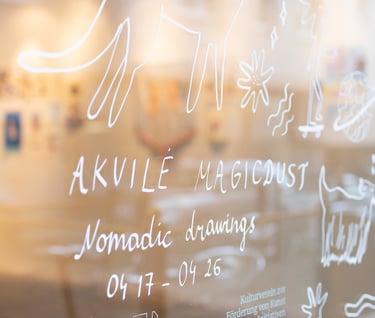 AKVILĖ MAGICDUST
Nomadic drawings
04 17 - 04 26
Kulturverein zur
Förderung von Kunst